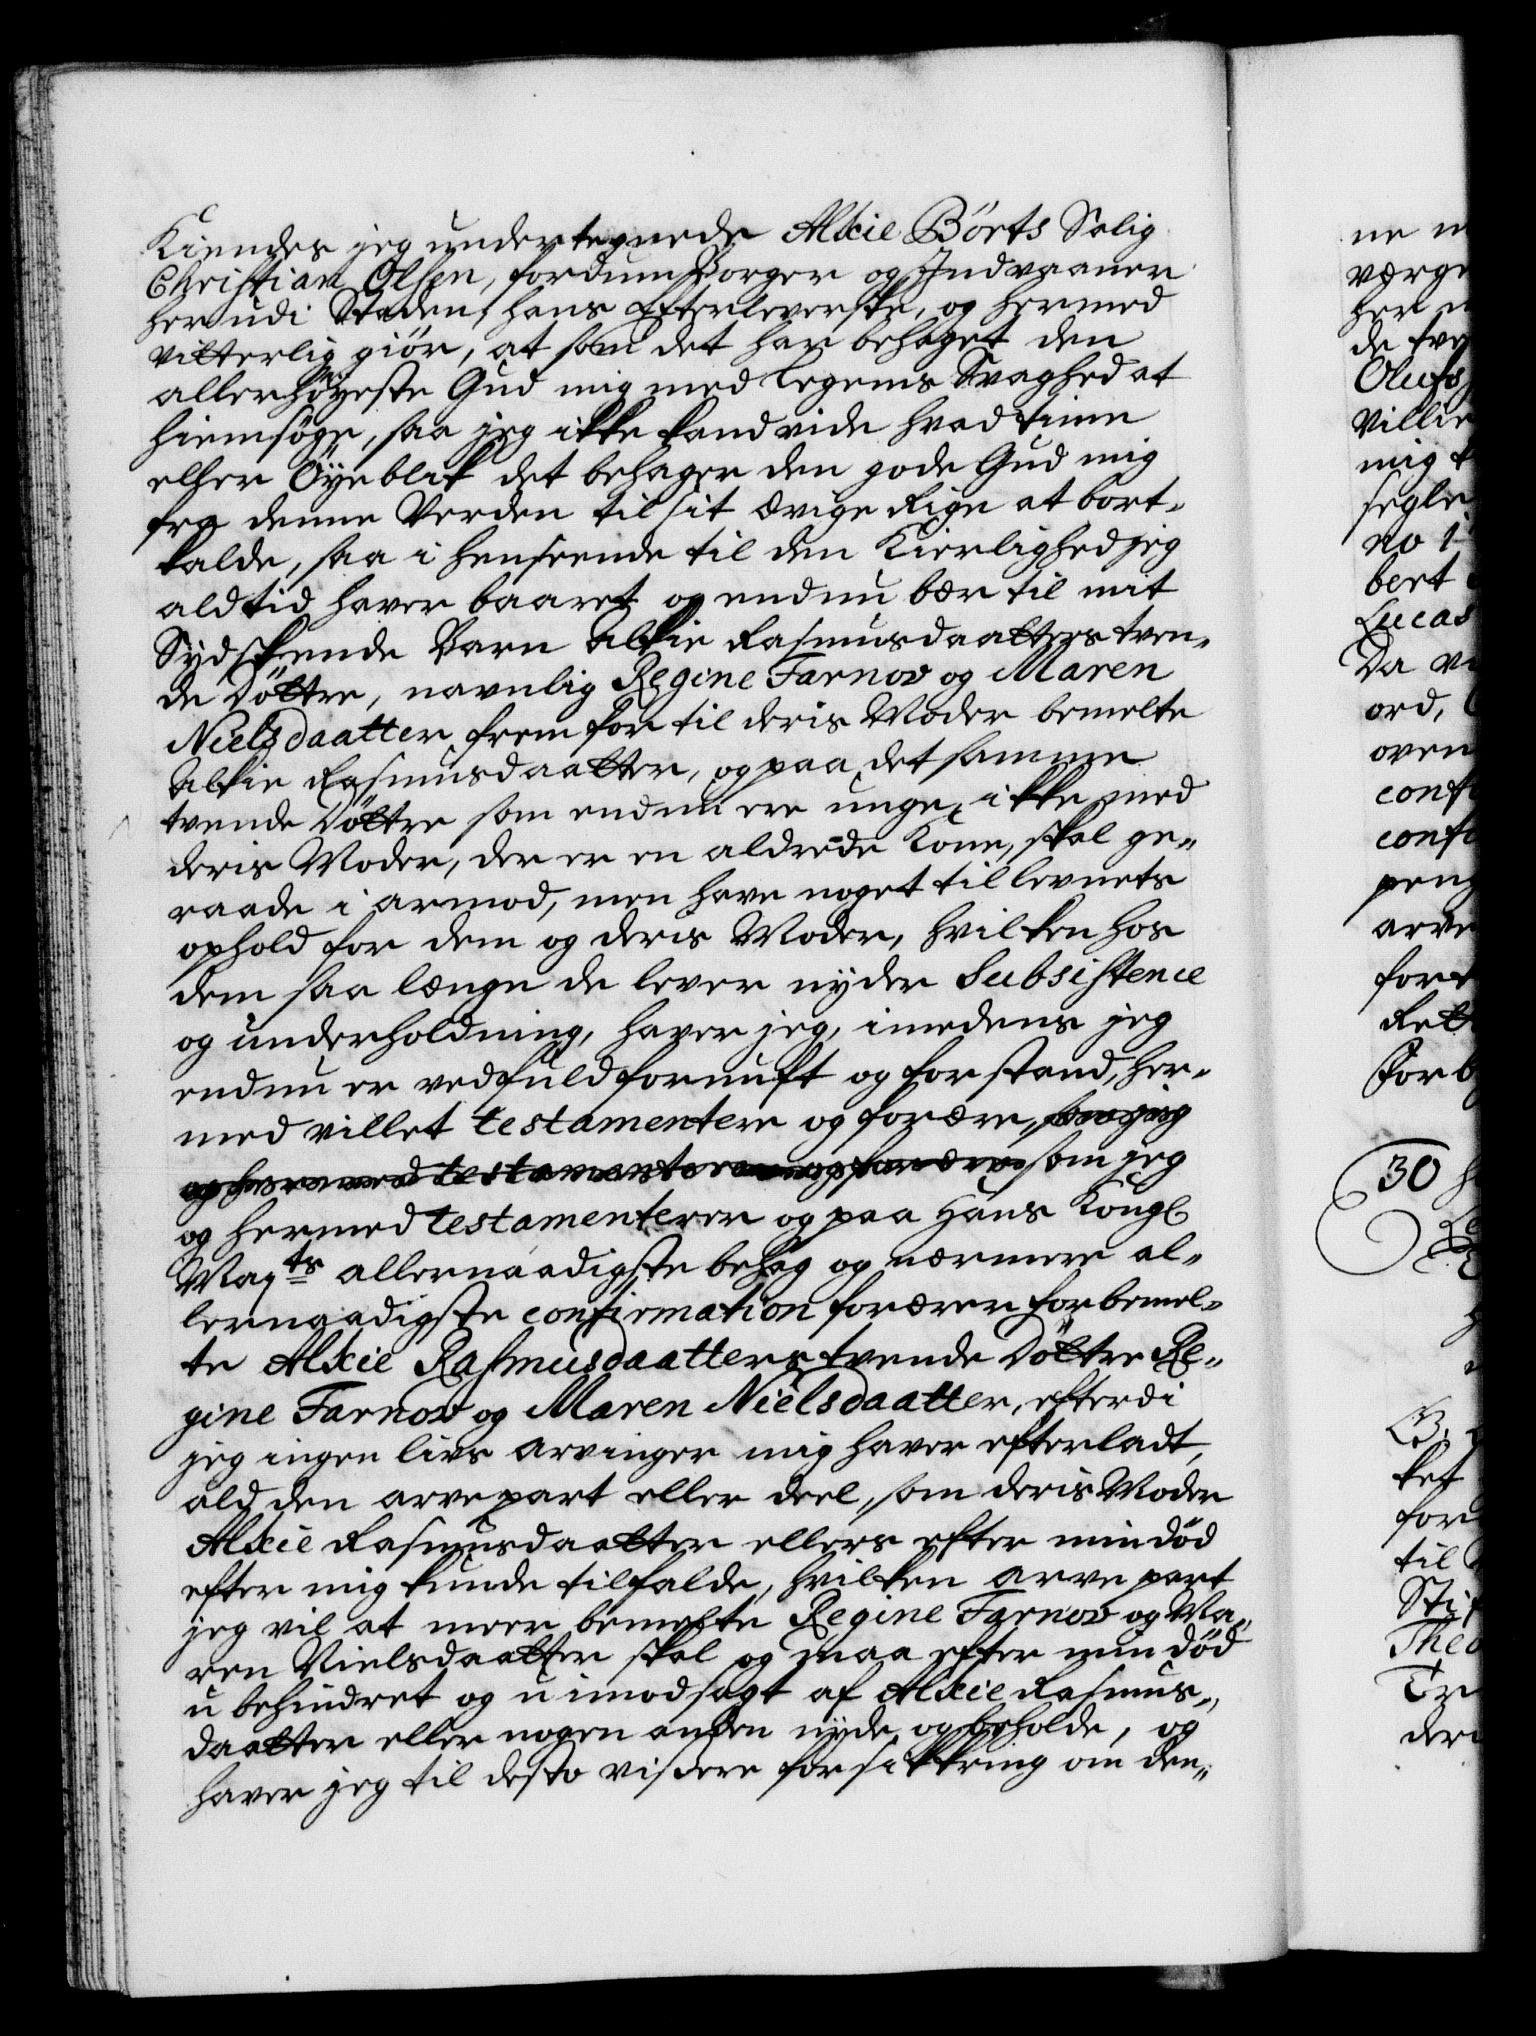 Kiendes jeg undertegnede Alkie Börts Salig
Christian Olsen, fordum Borger og Indvaaner
her udi Staden, hans Efterleverske, og hermed
vitterlig giör, at som det har behaget den
allerhöyeste Gud mig med Legems Svaghed at
hiemsöge, saa jeg ikke kand vide hvad time
eller Öyeblik det behager den gode Gud mig
fra denne Verden til sit ævige Rige at bort-
kalde, saa i henseende til den Kierlighed jeg
aldtid haver baaret og endnu bær til mit
Sydskende Barn Alkie Rasmusdaatters tven-
de Döttre, navnlig Regine Farnov og Maren
Nielsdaatter frem for til deris Moder bemelte
Alkie Rasmusdaatter, og paa det samme
tvende Döttre som endnu ere unge, ikke med
deris Moder, der er en aldrede Kone, skal ge-
raade i armod, men have noget til levnets
ophold for dem og deris Moder, hvilken hos
dem saa længe de lever nyder Subsistence
og underholdning, haver jeg, imedens jeg
endnu er ved fuld fornuft og forstand, her-
med villet testamentere og forære, som jeg
og hermed testamenterer og forærer som jeg
og hermed testamenterer og paa Hans Kongl
Mayts allernaadigste behag og nærmere al-
lernaadigste confirmation forærer forbemel-
te Alkie Rasmusdaatters tvende Döttre Re-
gine Farnov og Maren Nielsdaatter, efterdi
jeg ingen livs arvinger mig haver efterladt,
ald den arvepart eller deel, som deris Moder
Alkie Rasmusdaatter ellers efter min död
efter mig kunde tilfalde, hvilken arve part
jeg vil at meer bemelte Regine Farnov og Ma-
ren Nielsdaatter skal og maa efter min död
u behindret og u imodsagt af Alkie Rasmus-
daatter eller nogen anden nyde og beholde, og
haver jeg til desto vissere forsikkring om den-
værge
her
Olufs
Villie
mig
segle
no 1
bert
Lucas
Da
ord,
oven
conf
conf
peng
arve
for
Ret
For
30
ket
for
til
Sti
Theo
der